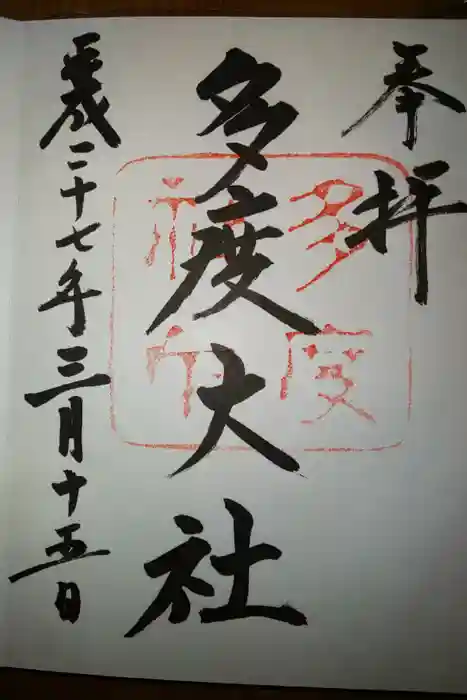 奉拝
多度大社
平成二十七年三月十五日
多度
神